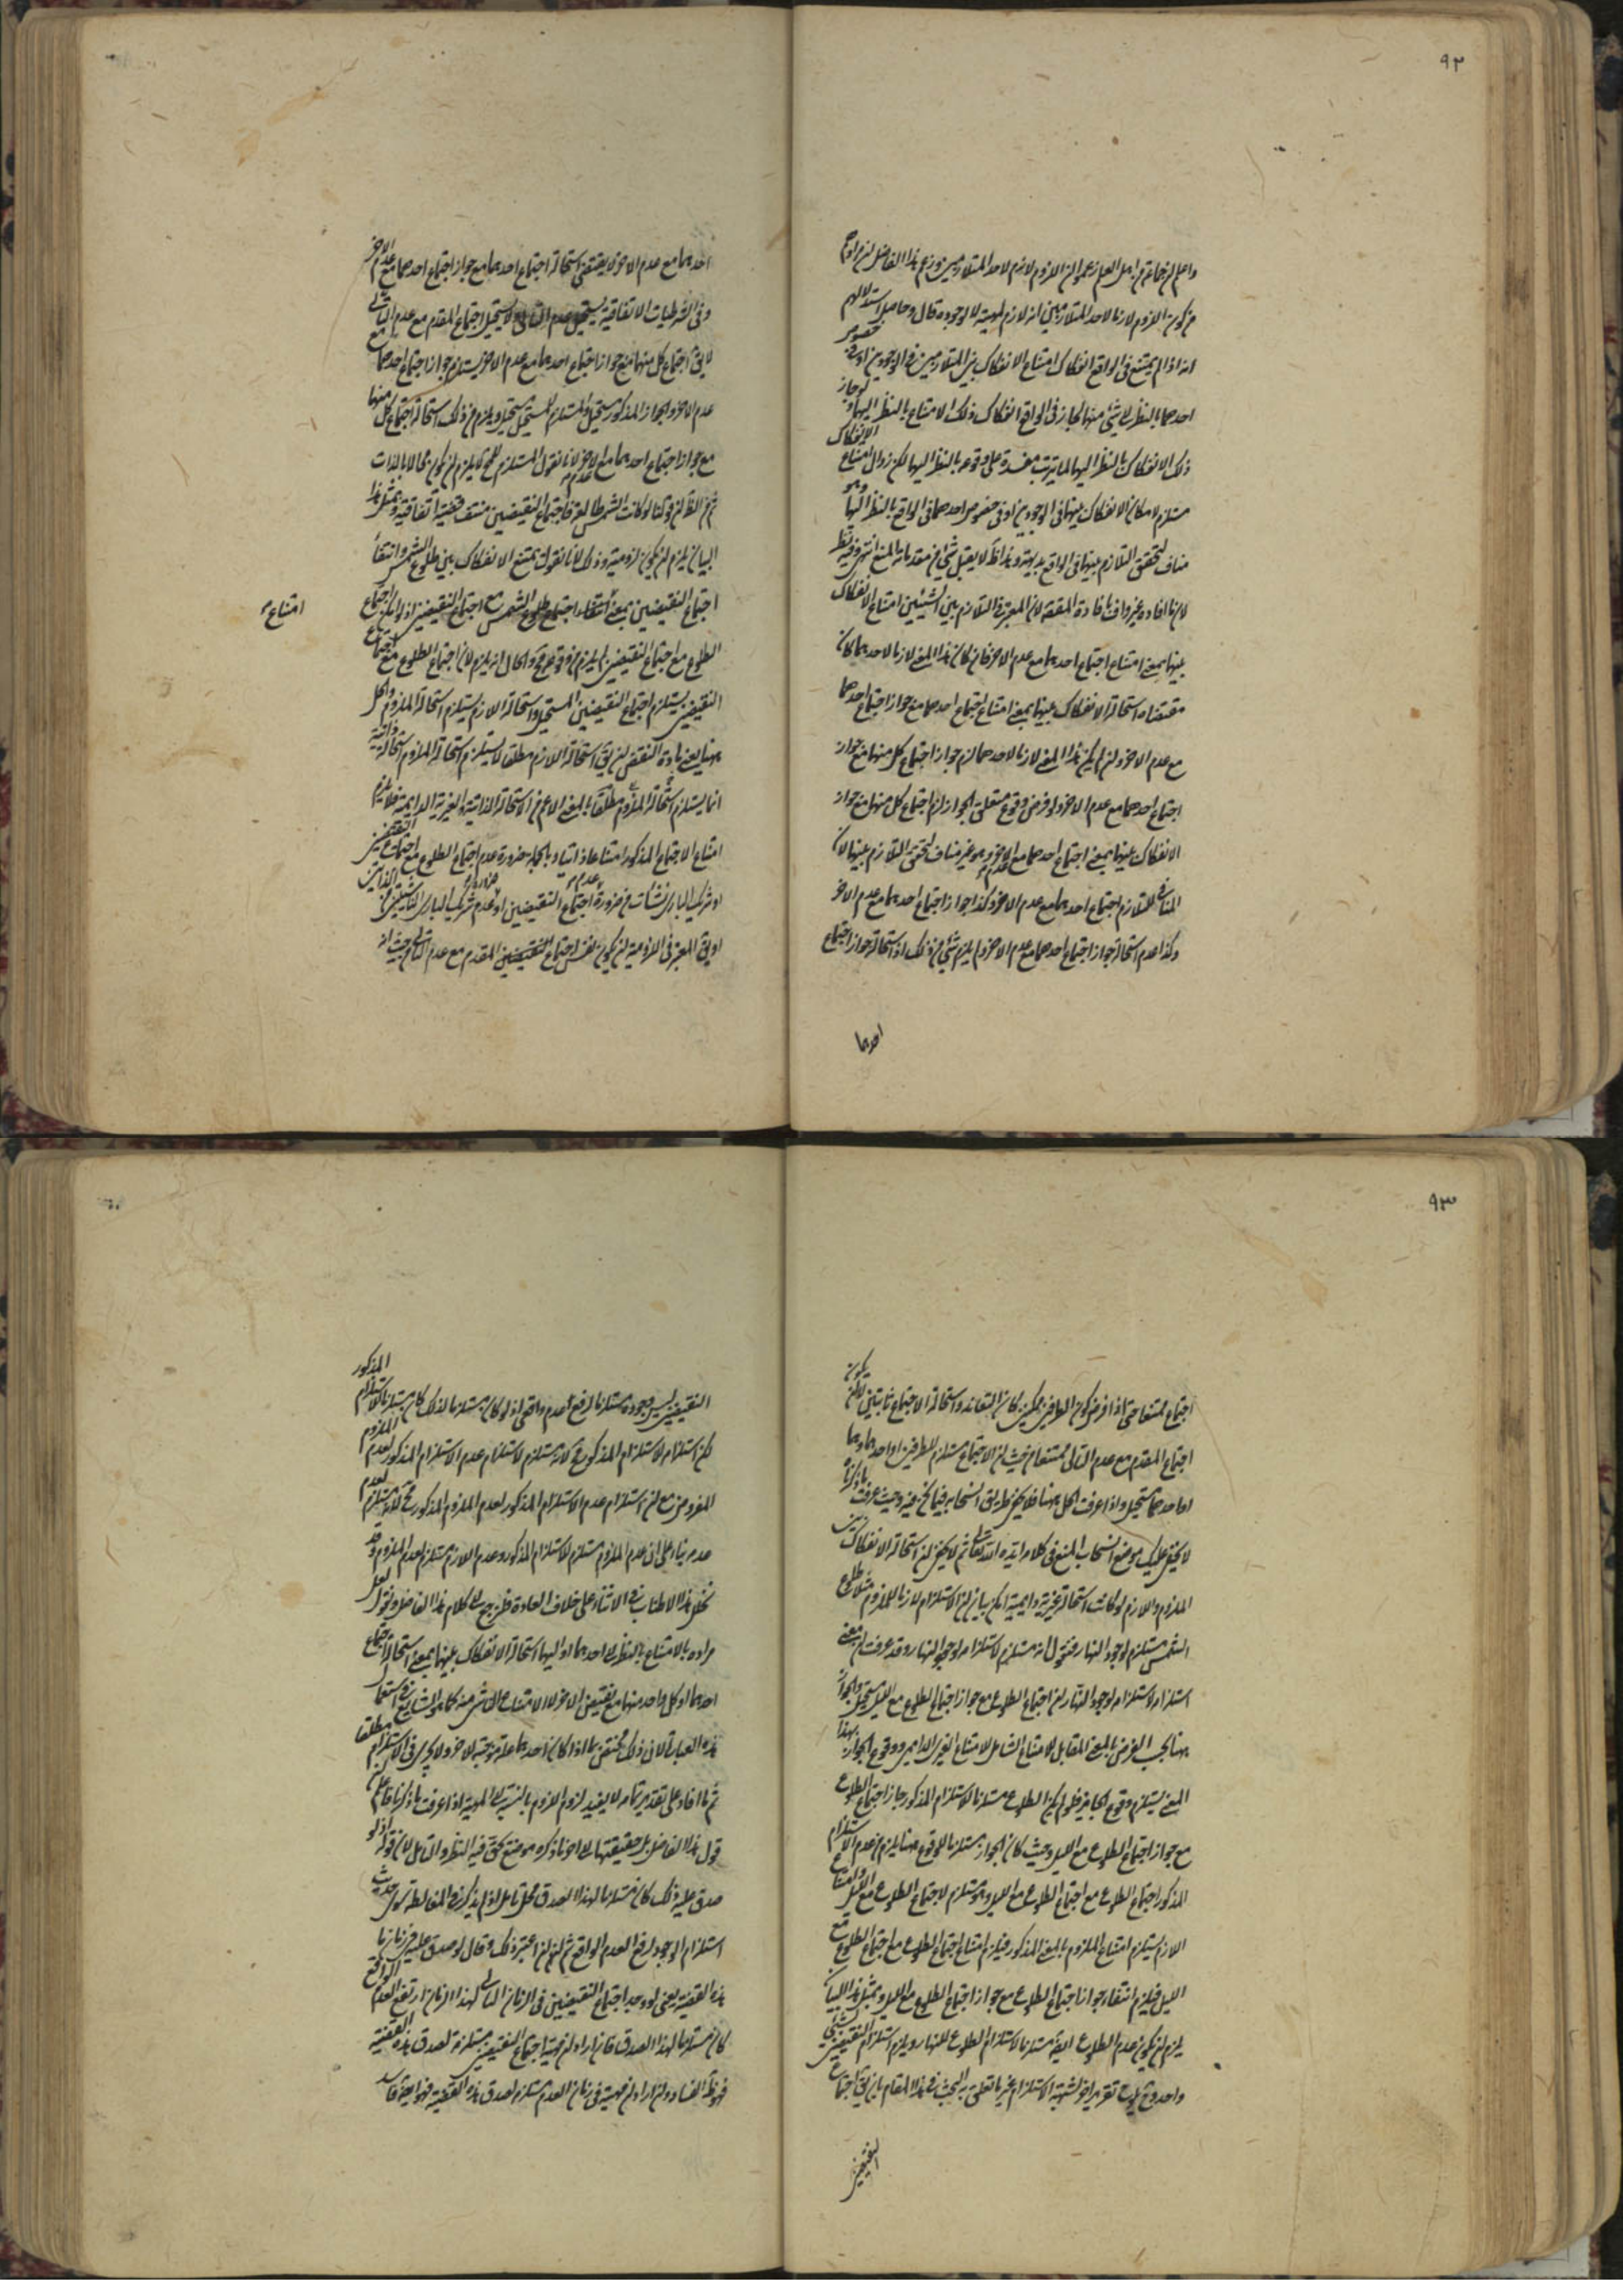 ٩٢
واعلم ان جماعة من اهل العلم زعموا ان اللزوم لازم لاحد المتلازمين وزعم هذا الفاضل
من كون اللزوم لازما لاحد المتلازمين انه لازم لمهيته لا لوجوده قال وحاصل استدلالهم
انه اذا لم يمتنع في الواقع انفكاك امتناع الانفكاك بين المتلازمين في الوجودين او في خصوص
احدهما بالنظر الى شئ منهما لجاز في الواقع انفكاك ذلك الامتناع بالنظر اليهما ولو جاز
ذلك الانفكاك بالنظر اليهما لما يترتب مفسدة على وقوعه بالنظر اليهما لكن زوال امتناع الانفكاك
مستلزم لامكان الانفكاك بينهما في الوجودين او في خصوص احدهما في الواقع بالنظر اليهما وهو
مناف لتحقق التلازم بينهما في الواقع بديهة وهذا لا يقبل شئ من مقدماته المنع انتهى وفيه نظر
لان ما افاده غير واف بافادة المقصد لان المعبر في التلازم بين الشيئين امتناع الانفكاك
بينهما بمعنى امتناع اجتماع احدهما مع عدم الاخر فان كان هذا المعنى لازما لاحدهما كان
مقتضاه استحالة الانفكاك بينهما بمعنى امتناع اجتماع احدهما مع جواز اجتماع احدهما
مع عدم الاخر وان لم يكن هذا المعنى لازما لاحدهما لزم جواز اجتماع كل منهما مع جواز
اجتماع احدهما مع عدم الاخر ولو فرض وقوع متعلق الجواز لزم اجتماع كل منهما مع جواز
الانفكاك بينهما بمعنى اجتماع احدهما مع عدم الاخر وهو غير مناف لتحقق التلازم بينهما لان
المنافي للتلازم اجتماع احدهما مع عدم الاخر وكذا جواز اجتماع احدهما مع عدم الاخر
وكذا عدم استحالة جواز اجتماع احدهما مع عدم الاخر ولم يلزم شئ من ذلك اذ استحالة جواز اجتماع
احدهما
احدهما مع عدم الاخر لا يقتضي استحالة اجتماع احدهما مع جواز اجتماع احدهما مع عدم الاخر
وفي الشرطيات الاتفاقية يستحيل عدم التالي ولا يستحيل اجتماع المقدم مع عدم التالي
لا يق اجتماع كل منهما مع جواز اجتماع احدهما مع عدم الاخر يستلزم جواز اجتماع احدهما مع
عدم الاخر والجواز المذكور مستحيل والمستلزم للمستحيل مستحيل ويلزم من ذلك استحالة اجتماع كل منهما
مع جواز اجتماع احدهما مع عدم الاخر لانا نقول المستلزم للمح لا يلزم ان يكون محالا بالذات
ثم من الظ ان قولنا لو كانت الشمس طالعة فاجتماع النقيضين منتف قضية اتفاقية وبمثل هذا
البيان يلزم ان يكون لزومية وذلك لانا نقول يمتنع الانفكاك بين طلوع الشمس وانتفاء
اجتماع النقيضين بمعنى استحالة اجتماع طلوع الشمس مع اجتماع النقيضين اذ لو امكن اجتماع
امتناع
الطلوع مع اجتماع النقيضين لم يلزم من وقوعه مح والحال انه يلزم لان اجتماع الطلوع مع اجتماع
النقيضين يستلزم اجتماع النقيضين المستحيل واستحالة اللازم يستلزم استحالة الملزوم والحل
ههنا يعني مادة النقض ان يق استحالة اللازم مطلقا لا يستلزم استحالة الملزوم استحالة ذاتية
انما يستلزم استحالة الملزوم مطلقا بالمعنى الاعم من الاستحالة الذاتية والغيرية الدائمية فلا يلزم
امتناع الاجتماع المذكور امتناعا ذاتيا وبالجملة ضرورة عدم اجتماع الطلوع مع اجتماع النقيضين
او شريك الباري نشأت من ضرورة عدم اجتماع النقيضين او عدم شريك الباري
او يق المعبر في اللزومية ان يكون نفس اجتماع المقدم مع عدم التالي من حيث انه
٩٣
اجتماع ممتنعا حتى اذا فرض كون الطرفين ممكنين كان التعاند واستحالة الاجتماع ثابتين لا ان يكون
اجتماع المقدم مع عدم التالي ممتنعا من حيث ان الاجتماع مستلزم للطرفين او احدهما وهما
او احدهما مستحيل واذا عرفت الحل ههنا فلا يخفى طريق انسحابه فيما نحن فيه وحيث عرفت ما ذكرناه
لا يخفى عليك موضع انسحاب المنع في كلامه ايده الله تعالى ثم لا يخفى ان استحالة الانفكاك بين
الملزوم واللازم لو كانت استحالة غيرية دائمية امكن بيان ان الاستلزام لازم للملزوم مثلا طلوع
الشمس مستلزم لوجود النهار فنقول انه مستلزم لاستلزامه لوجود النهار وقد عرفت ان معنى
استلزامه لاستلزامه لوجود النهار ان اجتماع الطلوع مع جواز اجتماع الطلوع مع الليل مستحيل والجواز
ههنا بحسب الفرض بالمعنى المقابل للامتناع الشامل لامتناع الغيري الدائمي ووقوع الجواز بهذا
المعنى يستلزم وقوع الجائز فلو لم يكن الطلوع مستلزما للاستلزام المذكور جاز اجتماع الطلوع
مع جواز اجتماع الطلوع مع الليل وحيث كان الجواز مستلزما للوقوع ههنا يلزم من عدم الاستلزام
المذكور اجتماع الطلوع مع اجتماع الطلوع مع الليل وهو مستلزم لاجتماع الطلوع مع الليل وامتناع
اللازم يستلزم امتناع الملزوم بالمعنى المذكور فيلزم امتناع اجتماع الطلوع مع اجتماع الطلوع مع
الليل فيلزم انتفاء جواز اجتماع الطلوع مع جواز اجتماع الطلوع مع الليل وبمثل هذا البيان
يلزم ان يكون عدم الطلوع ايضا مستلزما لاستلزام الطلوع للنهار ويلزم استلزام النقيضين لشئ
واحد وفي تقرير اخر لشبهة الاستلزام غير ما تعلق به البحث في هذا المقام بان يق اجتماع
النقيضين
النقيضين ليس وجوده مستلزما لرفع عدم واقعي اذ لو كان مستلزما لذلك كان مستلزما للاستلزام المذكور
لكن استلزام الاستلزام المذكور مح لانه مستلزم لاستلزام عدم الاستلزام المذكور لعدم الملزوم
المفروض مع ان استلزام عدم الاستلزام المذكور لعدم الملزوم المذكور مح لانه يستلزم لعدم
عدمه بناء على ان عدم الملزوم مستلزم للاستلزام المذكور وعدم اللازم مستلزم لعدم الملزوم وقد
تخلل هذا الاطناب في الاثناء على خلاف العادة فلنرجع الى كلام هذا الفاضل ونقول لعل
مراده بالامتناع بالنظر الى احدهما او اليهما استحالة الانفكاك بينهما بمعنى استحالة اجتماع
احدهما او كل واحد منهما مع نقيض الاخر لا الامتناع الناشي منه كما هو الشايع في استعمال
هذه العبارة لان ذلك مختص بما اذا كان احدهما علة موجبة للاخر ولا يجري في الاستلزام مطلقا
ثم ما افاد على تقدير تمامه لا يفيد لزوم اللزوم بالنسبة الى المهية اذا عرفت ما ذكرنا فاعلم ان
قول هذا الفاضل بل حقيقتها الى اخر ما ذكره موضع تحقق فيه النظر والتامل لان قوله اذ لو
صدق عليه ذلك كان مستلزما لهذا الصدق محل تامل اذ لم يذكر في المغالطة سوى حديث
استلزام الوجود لرفع العدم الواقع ثم ان اعتبر ذلك وقال لو صدق عليه في زمان ما
هذه القضية يعني لو وجد اجتماع النقيضين في الزمان التالي لهذا الزمان ارتفع العدم الواقع
كان مستلزما لهذا الصدق فان اراد ان مهية اجتماع النقيضين مستلزمة لصدق هذه القضية
فهو ظ الفساد وان اراد ان مهيته في زمان العدم مستلزم لصدق هذه القضية فهو ايضا فاسد